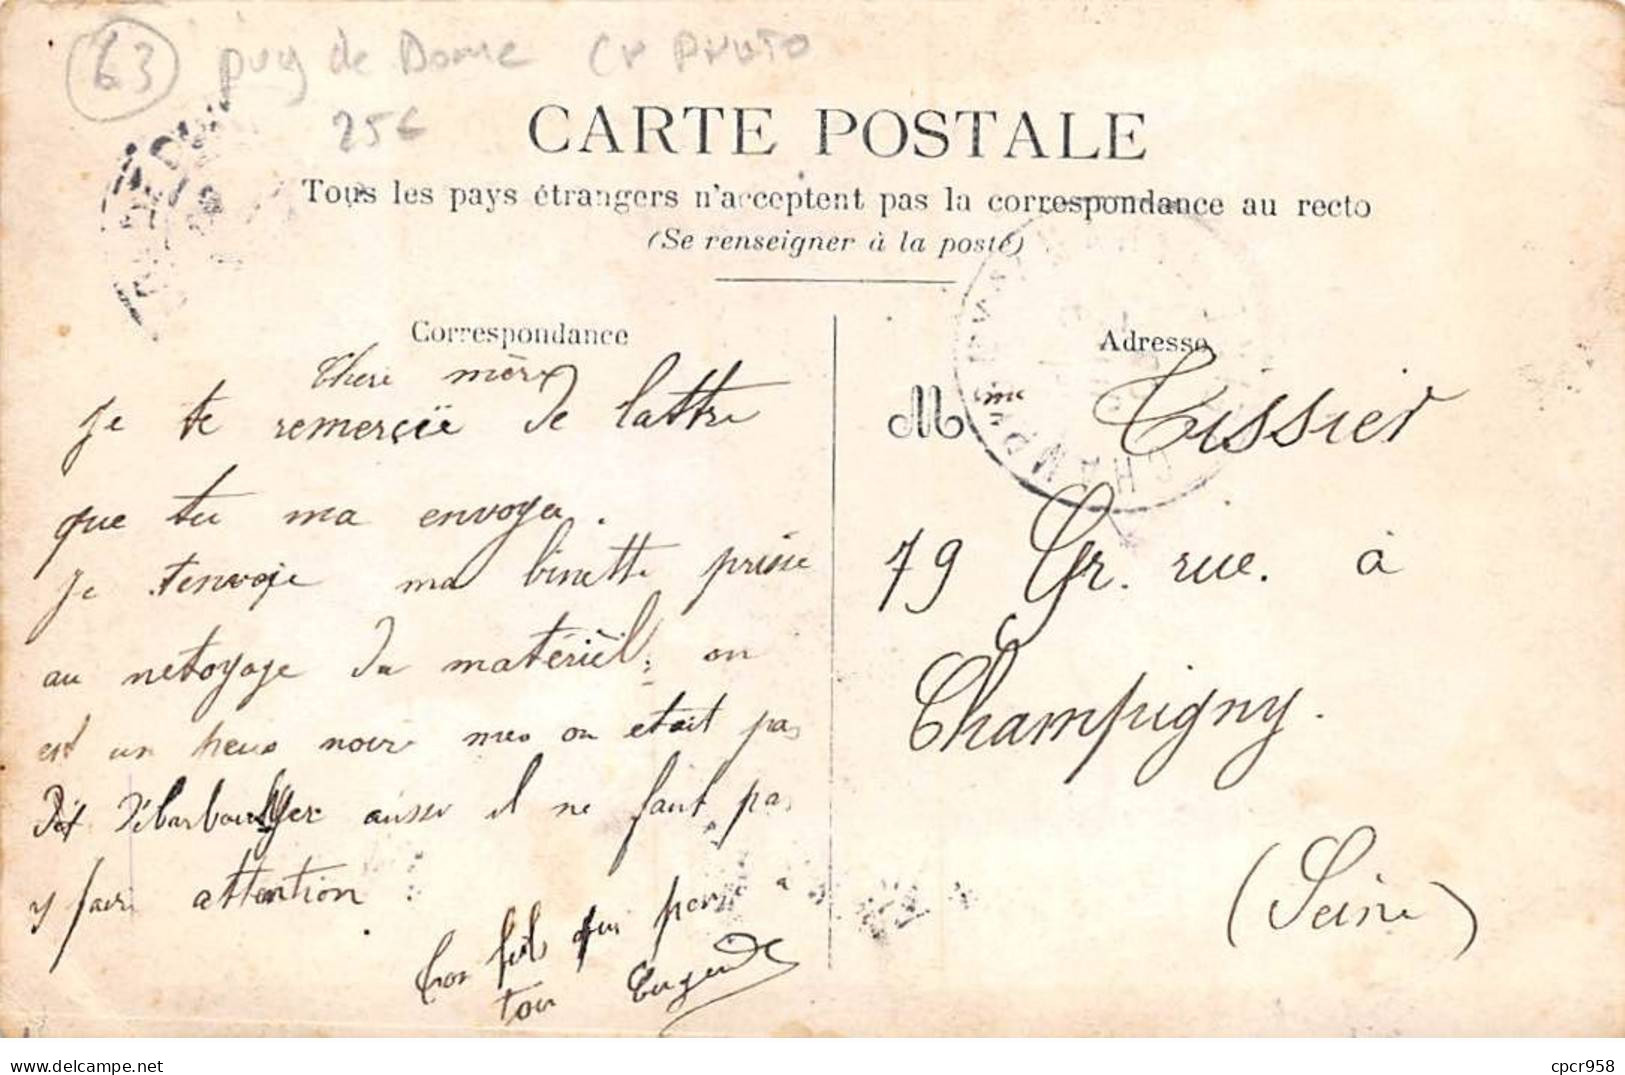 63 puy de Dome CP PHOTO
25€
CARTE POSTALE
Tous les pays étrangers n'acceptent pas la correspondance au recto
(Se renseigner à la poste)
Correspondance
Chere mère
Je te remerçïe de lattre
que tu ma envoyer.
Je tenvoie ma binette prisse
au netoyage du matériel; on
est un peus noir mes on etait pas
débarbouller aussi il ne faut pas
y faire attention.
Ton fils qui pense a
toi Eugene
Adresse
Mme Tissier
79 Gr. rue. à
Champigny.
(Seine)
CHAMPI
cpcr958